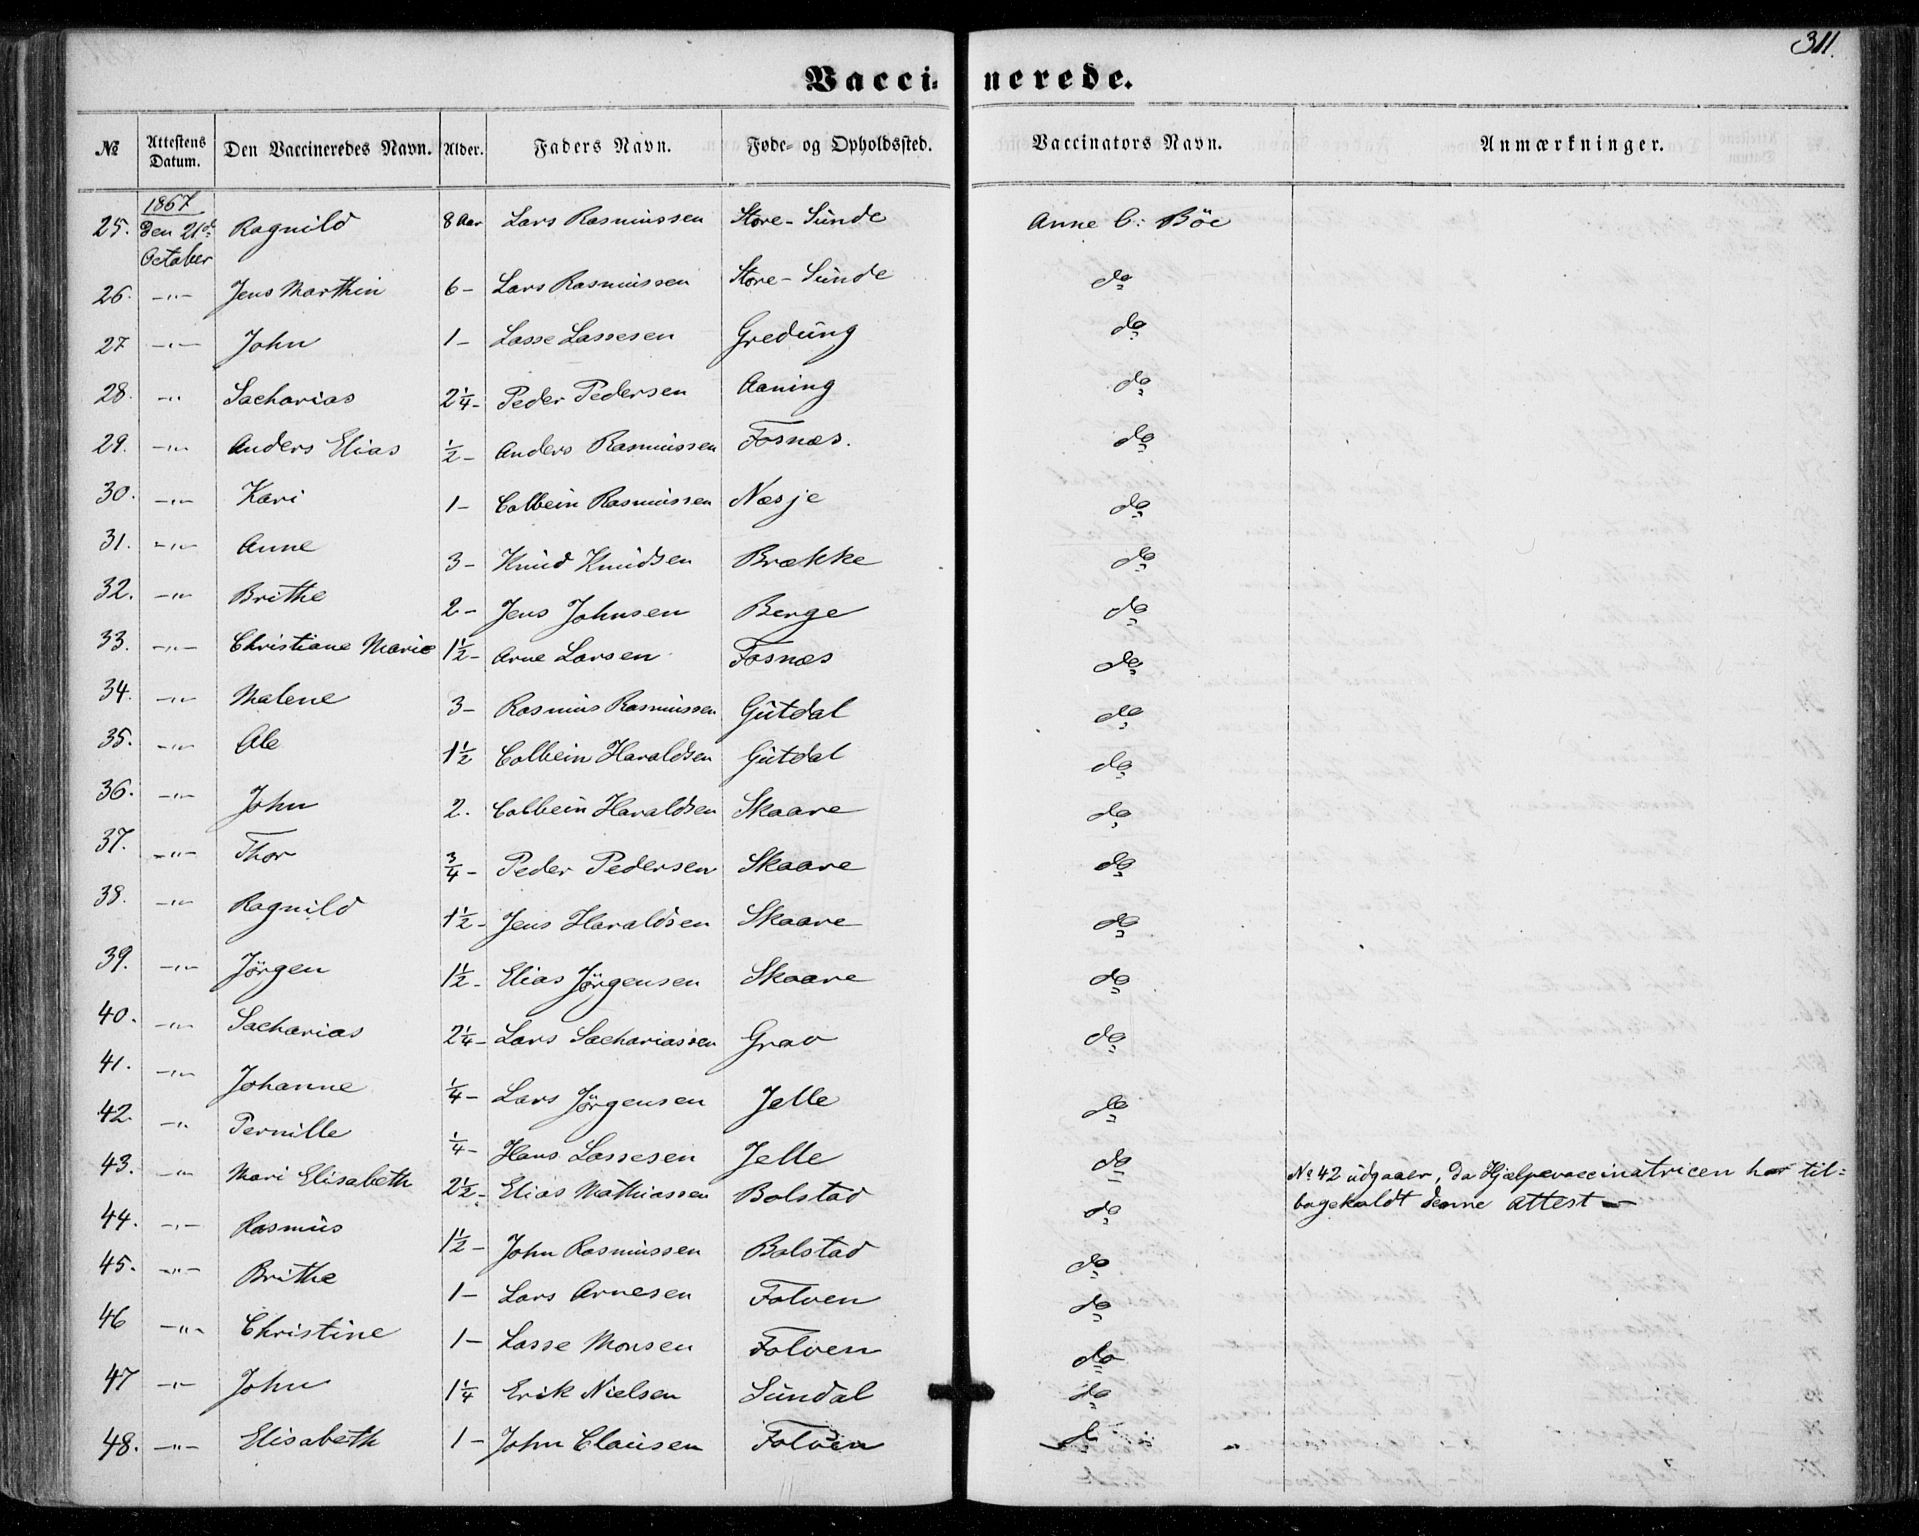 311.
Vaccinerede.
№ Attestens Datum. Den Vaccineredes Navn. Alder. Faders Navn. Føde- og Opholdssted. Vaccinators Navn. Anmærkninger.
1867
25. Den 21de October Ragnild 8 Aar Lars Rasmussen Store-Sunde Anne C: Böe
26. -"- Jens Marthin 6- Lars Rasmussen Store-Sunde do
27 -"- John 1- Lasse Lassesen Gredung do
28. -"- Sacharias 2¼- Peder Pedersen Aaning do
29. -"- Anders Elias ½- Anders Rasmussen Fosnæs. do
30. -"- Kari 1- Colbein Rasmussen Næsje do
31. -"- Anne 3- Knud Knudsen Brække do
32. -"- Brithe 2- Jens Johnsen Berge do
33. -"- Christiane Marie 1½- Arne Larsen Fosnæs do
34. -"- Malene 3- Rasmus Rasmussen Gutdal do
35. -"- Ole 1½ Colbein Haraldsen Gutdal do
36. -"- John 2. Colbein Haraldsen Skaare do
37. -"- Thor ¾- Peder Pedersen Skaare do
38. -"- Ragnild 1½- Jens Haraldsen Skaare do
39. -"- Jörgen 1½- Elias Jörgensen Skaare do
40. -"- Sacharias 2¼- Lars Sachariassen Grav do
41. -"- Johanne ¼- Lars Jörgensen Jelle do
42. -"- Pernille ¼- Hans Lassesen Jelle do № 42 udgaaer, da Hjælpevaccinatricen har til=
bagekaldt denne Attest —
43. -"- Mari Elisabeth 2½- Elias Mathiassen Bolstad do
44. -"- Rasmus 1½- John Rasmussen Bolstad do
45. -"- Brithe 1- Lars Arnesen Folven do
46 -"- Christine 1- Lasse Monsen Folven do
47 -"- John 1¼ Erik Nielsen Sundal do
48. -"- Elisabeth 1- John Clausen Folven d